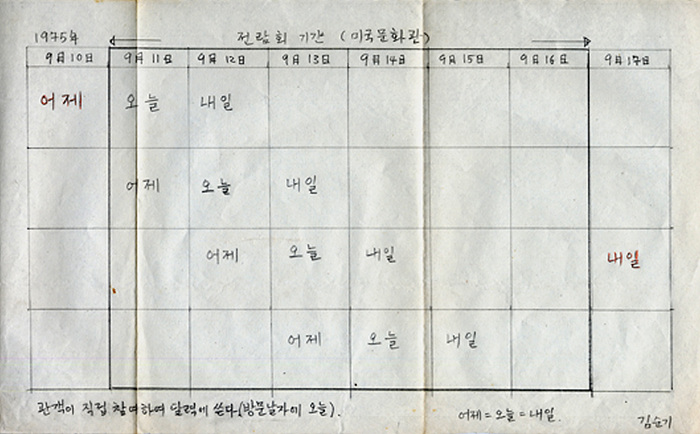 1975年 전람회 기간 (미국문화관)
9月10日 9月11日 9月12日 9月13日 9月14日 9月15日 9月16日 9月17日
어제 오늘 내일
어제 오늘 내일
어제 오늘 내일 내일
어제 오늘 내일
관객이 직접 참여하여 달력에 쓴다.(방문날자에 오늘).
어제=오늘=내일.
김순기